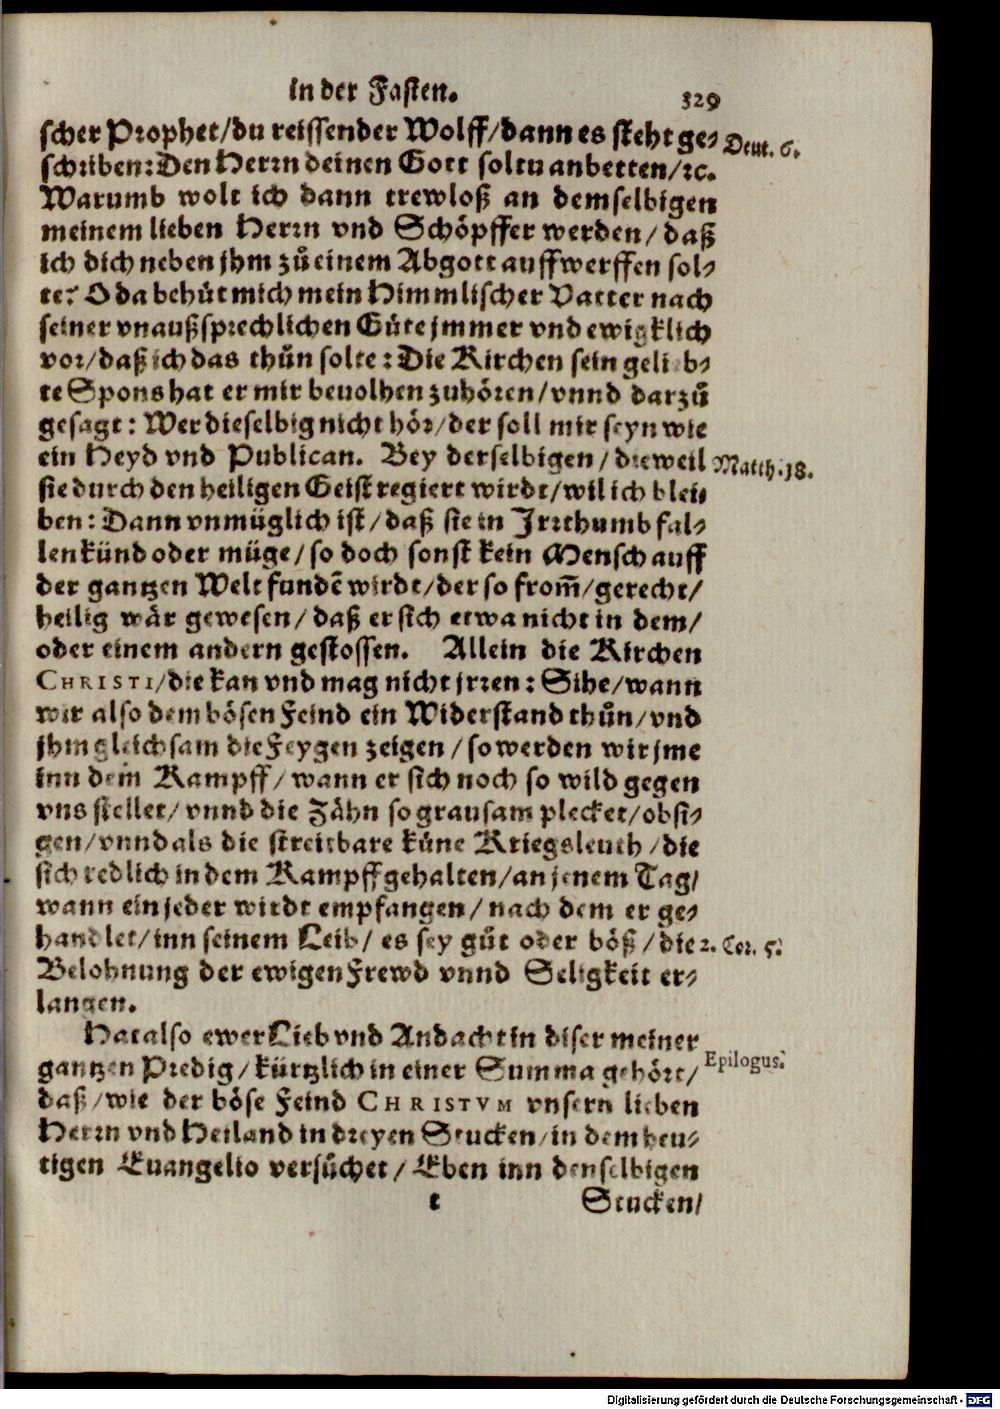 in der Fasten. 329
scher Prophet/du reissender Wolff/dann es steht ge- Deut. 6.
schriben: Den Herrn deinen Gott soltu anbetten/ꝛc.
Warumb wolt ich dann trewloß an demselbigen
meinem lieben Herrn vnd Schöpffer werden/ daß
ich dich neben jhm zů einem Abgott auffwerffen sol-
te? O da behüt mich mein Himmlischer Vatter nach
seiner vnaußsprechlichen Güte jmmer vnd ewigklich
vor/daß ich das thůn solte: Die Kirchen sein gelieb-
te Spons hat er mir beuolhen zuhören/vnnd darzů
gesagt: Wer dieselbig nicht hör/der soll mir seyn wie
ein Heyd vnd Publican. Bey derselbigen/dieweil Matth. 18.
sie durch den heiligen Geist regiert wirdt/wil ich blei-
ben: Dann vnmüglich ist/daß sie in Jrrthumb fal-
len künd oder müge/so doch sonst kein Mensch auff
der gantzen Welt fundē wirdt/der so from̄/gerecht/
heilig wär gewesen/daß er sich etwa nicht in dem/
oder einem andern gestossen. Allein die Kirchen
CHRISTI/die kan vnd mag nicht jrren: Sihe/wann
wir also dem bösen Feind ein Widerstand thůn/vnd
jhm gleichsam die Feygen zeigen/so werden wir jme
inn dem Kampff/wann er sich noch so wild gegen
vns stellet/vnnd die Zähn so grausam plecket/obsi-
gen/vnnd als die streitbare küne Kriegsleuth/die
sich redlich in dem Kampff gehalten/an jenem Tag/
wann ein jeder wirdt empfangen/nach dem er ge-
handlet/inn seinem Leib/es sey gůt oder böß/die 2. Cor. 5.
Belohnung der ewigen Frewd vnnd Seligkeit er-
langen.
Hat also ewer Lieb vnd Andacht in diser meiner
gantzen Predig/kürtzlich in einer Summa gehört/ Epilogus.
daß/wie der böse Feind CHRISTVM vnsern lieben
Herrn vnd Heiland in dreyen Stucken/in dem heu-
tigen Euangelio versůchet/Eben inn denselbigen
t Stucken/
Digitalisierung gefördert durch die Deutsche Forschungsgemeinschaft - DFG